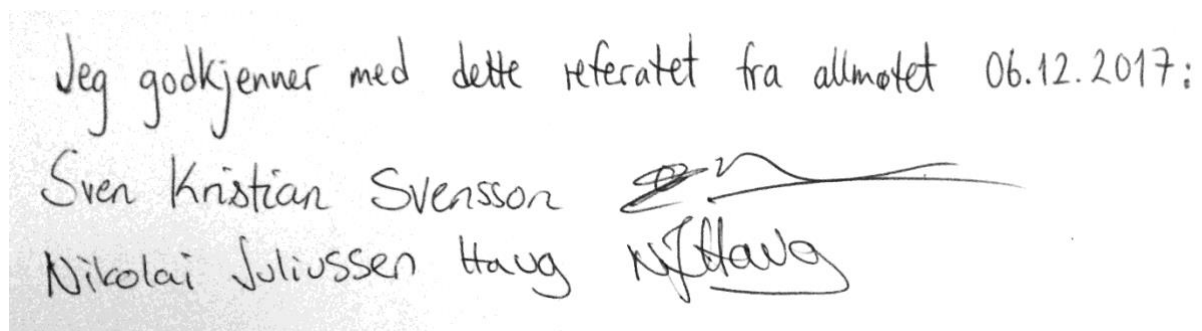 Jeg godkjenner med dette referatet fra allmøtet 06.12.2017:
Sven Kristian Svensson
Nikolai Juliussen Haug NJHaug